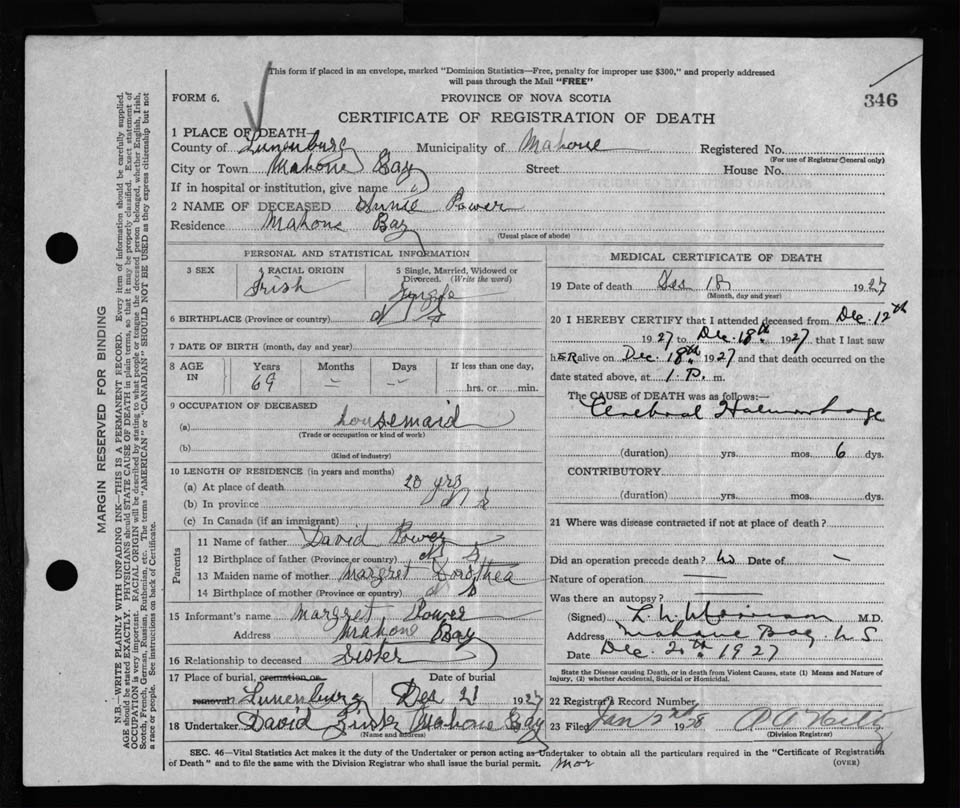 This form if placed in an envelope, marked "Dominion Statistics—Free, penalty for improper use $300," and properly addressed
will pass through the Mail "FREE"
FORM 6.
PROVINCE OF NOVA SCOTIA
346
CERTIFICATE OF REGISTRATION OF DEATH
1 PLACE OF DEATH
County of Lunenburg Municipality of Mahone Registered No.
(For use of Registrar General only)
City or Town Mahone Bay Street House No.
If in hospital or institution, give name
2 NAME OF DECEASED Annie Power
Residence Mahone Bay
(Usual place of abode)
PERSONAL AND STATISTICAL INFORMATION
3 SEX 4 RACIAL ORIGIN 5 Single, Married, Widowed or Divorced. (Write the word)
Irish Single
6 BIRTHPLACE (Province or country) N S
7 DATE OF BIRTH (month, day and year)
8 AGE IN Years Months Days If less than one day,
69 — — hrs. or min.
9 OCCUPATION OF DECEASED
(a) housemaid
(Trade or occupation or kind of work)
(b)
(Kind of industry)
10 LENGTH OF RESIDENCE (in years and months)
(a) At place of death 20 yrs
(b) In province N S
(c) In Canada (if an immigrant)
Parents
11 Name of father David Power
12 Birthplace of father (Province or country) N S
13 Maiden name of mother Margret
14 Birthplace of mother (Province or country) N S
15 Informant's name Margret Power
Address Mahone Bay
16 Relationship to deceased Sister
17 Place of burial, cremation or removal Date of burial
Lunenburg Dec 21 1927
18 Undertaker David Mahone Bay
(Name and address)
MEDICAL CERTIFICATE OF DEATH
19 Date of death Dec 18 1927
(Month, day and year)
20 I HEREBY CERTIFY that I attended deceased from Dec. 12th
1927 to Dec. 18th 1927, that I last saw
hER alive on Dec. 18th 1927 and that death occurred on
date stated above, at 1. P. m.
The CAUSE of DEATH was as follows:—
Cerebral Haemorrhage
(duration) yrs. mos. 6 dys.
CONTRIBUTORY
(duration) yrs. mos. dys.
21 Where was disease contracted if not at place of death?
Did an operation precede death? No Date of —
Nature of operation —
Was there an autopsy? —
(Signed) M.D.
Address Mahone Bay N S
Date Dec. 20th 1927
State the Disease Causing Death, or in death from Violent Causes, state (1) Means and Nature of
Injury, (2) whether Accidental, Suicidal or Homicidal.
22 Registrar's Record Number
23 Filed Jan 2nd 1928
(Division Registrar)
SEC. 46—Vital Statistics Act makes it the duty of the Undertaker or person acting as Undertaker to obtain all the particulars required in the "Certificate of Registration
of Death" and to file the same with the Division Registrar who shall issue the burial permit.
(OVER)
MARGIN RESERVED FOR BINDING
N.B.—WRITE PLAINLY WITH UNFADING INK—THIS IS A PERMANENT RECORD. Every item of information should be carefully supplied.
AGE should be stated EXACTLY. PHYSICIANS should STATE CAUSE OF DEATH in plain terms, so that it may be properly classified. Exact statement of
OCCUPATION is very important. RACIAL ORIGIN will be described by stating to what people or tongue the deceased person belonged, whether English, Irish,
Scotch, French, German, Russian, Ruthenian, etc. The terms "AMERICAN" or "CANADIAN" SHOULD NOT BE USED as they express citizenship but not
a race or people. See instructions on back of Certificate.